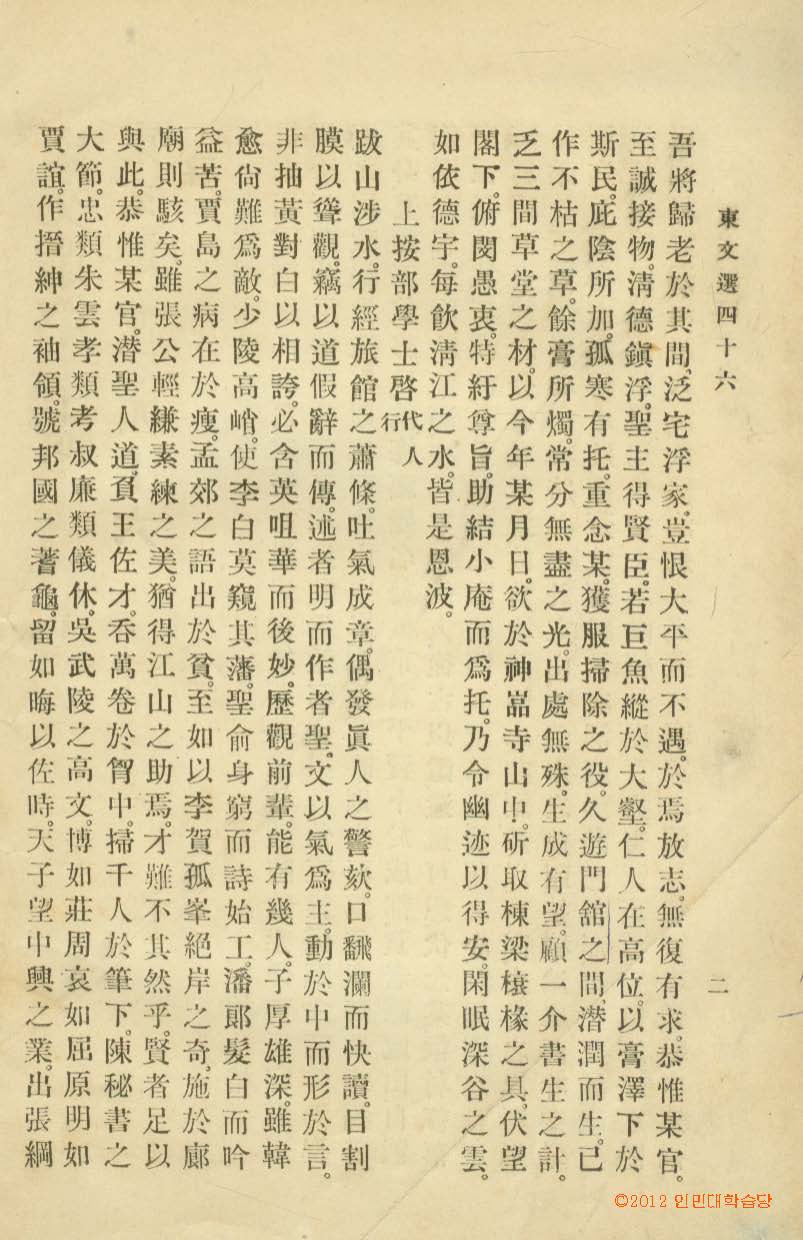 東文選四十六
二
吾將歸老於其間。泛宅浮家。豈恨大平而不遇。於焉放志。無復有求。恭惟某官。
至誠接物。淸德鎭浮。聖主得賢臣。若巨魚縱於大壑。仁人在高位。以膏澤下於
斯民。庇陰所加。孤寒有托。重念某。獲服掃除之役。久遊門舘之間。潛潤而生。已
作不枯之草。餘膏所燭。常分無盡之光。出處無殊。生成有望。顧一介書生之計。
乏三間草堂之材。以今年某月日。欲於神嵓寺山中。斫取棟梁榱椽之具。伏望
閣下。俯閔愚衷。特紆尊旨。助結小庵而爲托。乃令幽迹以得安。閑眠深谷之雲。
如依德宇。每飮淸江之水。皆是恩波。
上按部學士啓代人行
跋山涉水。行經旅館之蕭條。吐氣成章。偶發眞人之警欬。口飜瀾而快讀。目割
膜以聳觀。竊以道假辭而傳。述者明而作者聖。文以氣爲主。動於中而形於言。
非抽黃對白以相誇。必含英咀華而後妙。歷觀前輩。能有幾人。子厚雄深。雖韓
愈尙難爲敵。少陵高峭。使李白莫窺其藩。聖兪身窮而詩始工。潘郞髮白而吟
益苦。賈島之病在於瘦。孟郊之語出於貧。至如以李賀孤峯絕岸之奇。施於廊
廟則駭矣。雖張公輕縑素練之美。猶得江山之助焉。才難不其然乎。賢者足以
與此。恭惟某官。潛聖人道。負王佐才。呑萬卷於胷中。掃千人於筆下。陳秘書之
大節。忠類朱雲孝類考叔廉類儀休。吳武陵之高文。博如莊周哀如屈原明如
賈誼。作搢紳之袖領。號邦國之蓍龜。留如晦以佐時。天子望中興之業。出張綱
©2012 인민대학습당